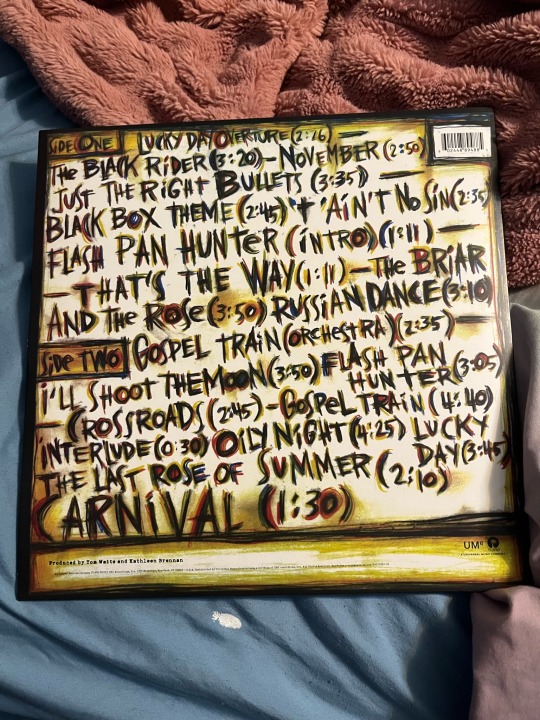 SIDE ONE LUCKY DAY OVERTURE (2:26) —
THE BLACK RIDER (3:20) — NOVEMBER (2:50)
JUST THE RIGHT BULLETS (3:35) —
BLACK BOX THEME (2:45) 'T 'AIN'T NO SIN (2:35)
FLASH PAN HUNTER (INTRO) (1:11) —
— THAT'S THE WAY (1:11) — THE BRIAR
AND THE ROSE (3:50) RUSSIAN DANCE (3:10)
SIDE TWO GOSPEL TRAIN (ORCHESTRA) (2:35) —
I'LL SHOOT THE MOON (3:50) FLASH PAN
HUNTER (3:05)
— CROSSROADS (2:45) — GOSPEL TRAIN (4:40)
INTERLUDE (0:30) OILY NIGHT (4:25) LUCKY
DAY (3:45)
THE LAST ROSE OF SUMMER (2:10)
CARNIVAL (1:30)
Produced by Tom Waits and Kathleen Brennan
UMe